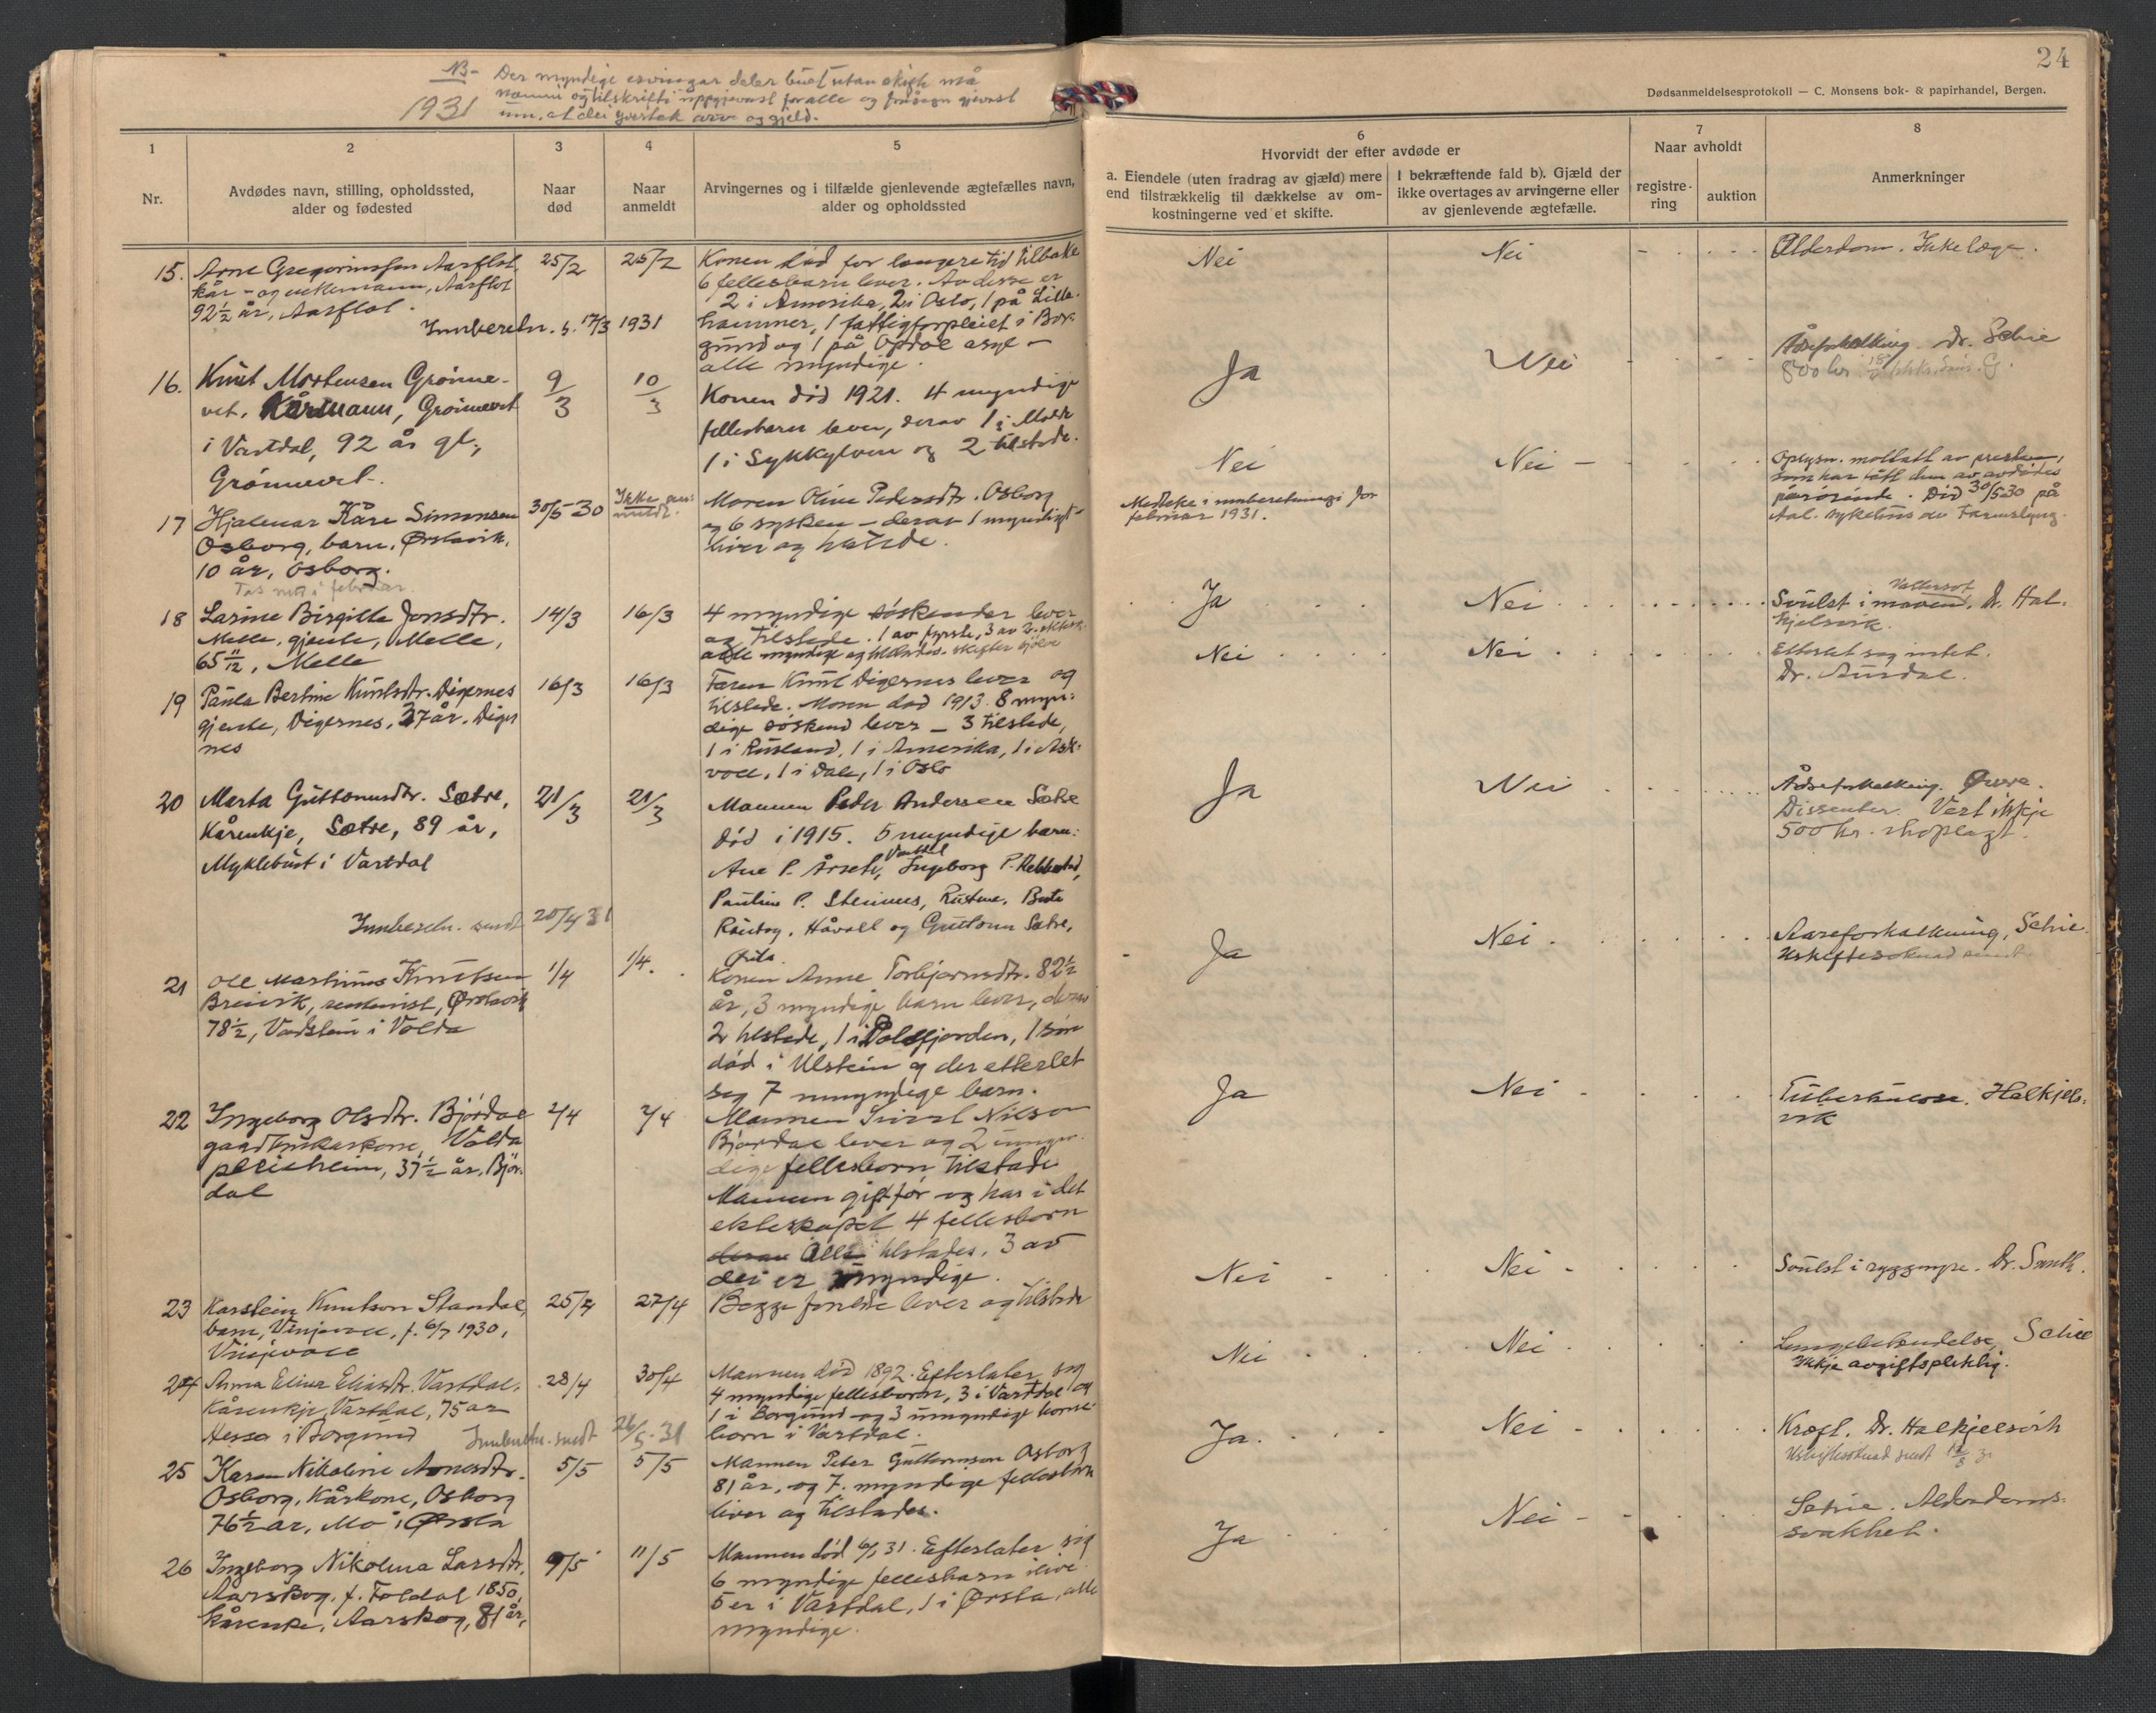 NB- Der myndige arvingar deler buet utan skifte må
namni og tilskrift uppgjevast for alle og frásegn gjevast
um, at dei yvertek arv og gjeld.
1931
24
Dødsanmeldelsesprotokoll — C. Monsens bok- & papirhandel, Bergen.
1
2
3
4
5
6
7
8
Nr.
Avdødes navn, stilling, opholdssted,
alder og fødested
Naar
død
Naar
anmeldt
Arvingernes og i tilfælde gjenlevende ægtefælles navn,
alder og opholdssted
Hvorvidt der efter avdøde er
a. Eiendele (uten fradrag av gjæld) mere
end tilstrækkelig til dækkelse av om-
kostningerne ved et skifte.
I bekræftende fald b). Gjæld der
ikke overtages av arvingerne eller
av gjenlevende ægtefælle.
Naar avholdt
registre-
ring
auktion
Anmerkninger
15. Arne Gregoriussen Aarflot,
kår- og enkemann, Aarflot
92½ år, Aarflot.
25/2
25/2
Konen død for lengere tid tilbake
6 fellesbarn lever. Av disse er
2 i Amerika, 2 i Oslo, 1 på Lille-
hammer, 1 fattigforpleiet i Bor-
gund og 1 på Opdøl asyl –
alle myndige.
Nei
Nei
Alderdom. Ikke læge.
Innberetn. s. 17/3 1931
16. Knut Mortensen Grønne-
vet, Kårmann, Grønnevet
i Vartdal, 92 år gl.,
Grønnevet.
9/3
10/3
Konen død 1921. 4 myndige
fellesbarn lever, derav 1 i Molde
1 i Sykkylven og 2 tilstede.
Ja
Nei
Åreforkalking. Dr. Schie
800 kr.
17 Hjalmar Kåre Simonsen
Osborg, barn, Ørstavik,
10 år, Osborg.
Tas med i februar
30/5 30
Ikke an-
meldt.
Moren Oline Pedersdtr. Osborg
og 6 sysken – derav 1 myndigt –
liver og tilstede.
Nei
Nei –
Medteke i innberetningi for
februar 1931.
Oplysn. mottatt av presten,
som har fått dem av avdødes
pårørende. Død 30/5 30 på
Aal. sykehus av tarmslyng.
18 Larine Birgitte Jonsdtr.
Melle, gjente, Melle,
65 11/12, Melle
14/3
16/3
4 myndige søskender lever
og tilstede. 1 av fyrste, 3 av 2. ektesk.
alle myndige og tilstades. skifter sjølv
Ja
Nei
Svulst i maven, Dr. Hal-
kjelsvik.
19 Paula Bertine Knutsdtr. Digernes
gjente, Digernes, 37 år. Diger
nes
16/3
16/3
Faren Knut Digernes lever og
tilstede. Moren død 1913. 8 myn-
dige søskend lever – 3 tilstede,
1 i Rusland, 1 i Amerika, 1 i Ask-
voll, 1 i Dale, 1 i Oslo
Nei
Nei
Etterlet seg intet.
Dr. Aurdal.
20 Marta Guttormsdtr. Sætre,
Kårenkje, Sætre, 89 år,
Myklebust i Vartdal
21/3
21/3
Mannen Peder Andersen Sætre
død i 1915. 5 myndige barn:
Ane P. Årseth, Vartdal Ingeborg P. Rebbestad,
Pauline P. Steinnes, Rustene, Berte
Røistog, Håvoll og Guttorm Sætre,
Ørsta.
Ja
Nei
Åreforkalking. Øvre.
Dissenter. Vert ikkje
500 kr.
Innberetn. sendt 20/4 31
21 Ole Martinus Knutsen
Breivik, rentenist, Ørstavik
78½, Vadstein i Volda
1/4
1/4.
Konen Anne Torbjørnsdtr. 82½
år, 3 myndige barn lever, derav
2 tilstede, 1 i Dalsfjorden, 1 søn
død i Ulstein og der etterlet
seg 7 umyndige barn.
Ja
Nei
Aareforkalkning, Schie.
Uskiftesøknad sendt
22 Ingeborg Olsdtr. Bjørdal
gardbrukarkone, Volda
pleieheim, 37½ år, Bjør-
dal
2/4
7/4
Mannen Sivert Nilsen
Bjørdal lever og 2 umyn-
dige fellesborn tilstade
Mannen gift før og har i det
ekteskapet 4 fellesborn
derav Alle tilstades. 3 av
dei er umyndige.
Ja
Nei
Tuberkulose. Halkjels-
vik
23 Karstein Knutson Standal,
barn, Vinjevoll, f. 6/7 1930,
Vinjevoll
25/4
27/4
Begge foreldre lever og tilstede
Nei
Nei
Svulst i ryggmyrg. Dr. Smith.
24 Anna Elina Eliasdtr. Vartdal,
Kårenkje, Vartdal, 75 år
Hessa i Borgund
28/4
30/4
Mannen død 1892. Efterlater sig
4 myndige fellesborn, 3 i Vartdal og
1 i Borgund og 3 umyndige borne-
born i Vartdal.
Nei
Nei
Lungebetendelse, Schie
Ikkje avgiftspliktig.
Innberetn. sendt 26/5 31
25 Karen Nikoline Arnesdtr.
Osborg, Kårkone, Osborg
76½ år, Mo i Ørsta
5/5
5/5
Mannen Peter Guttormson Osborg
81 år, og 7 myndige fellesborn
liver og tilstades.
Ja
Nei
Kreft. Dr. Halkjelsvik
Uskiftesøknad sendt
26 Ingeborg Nikolina Larsdtr.
Aarskog, f. Foldal 1850,
kårenke, Aarskog, 81 år,
9/5
11/5
Mannen død 6/1 31. Efterlater sig
6 myndige fellesbarn ilive
5 er i Vartdal, 1 i Ørsta, alle
myndige.
Ja
Nei
Schie. Alderdoms-
svakhet.